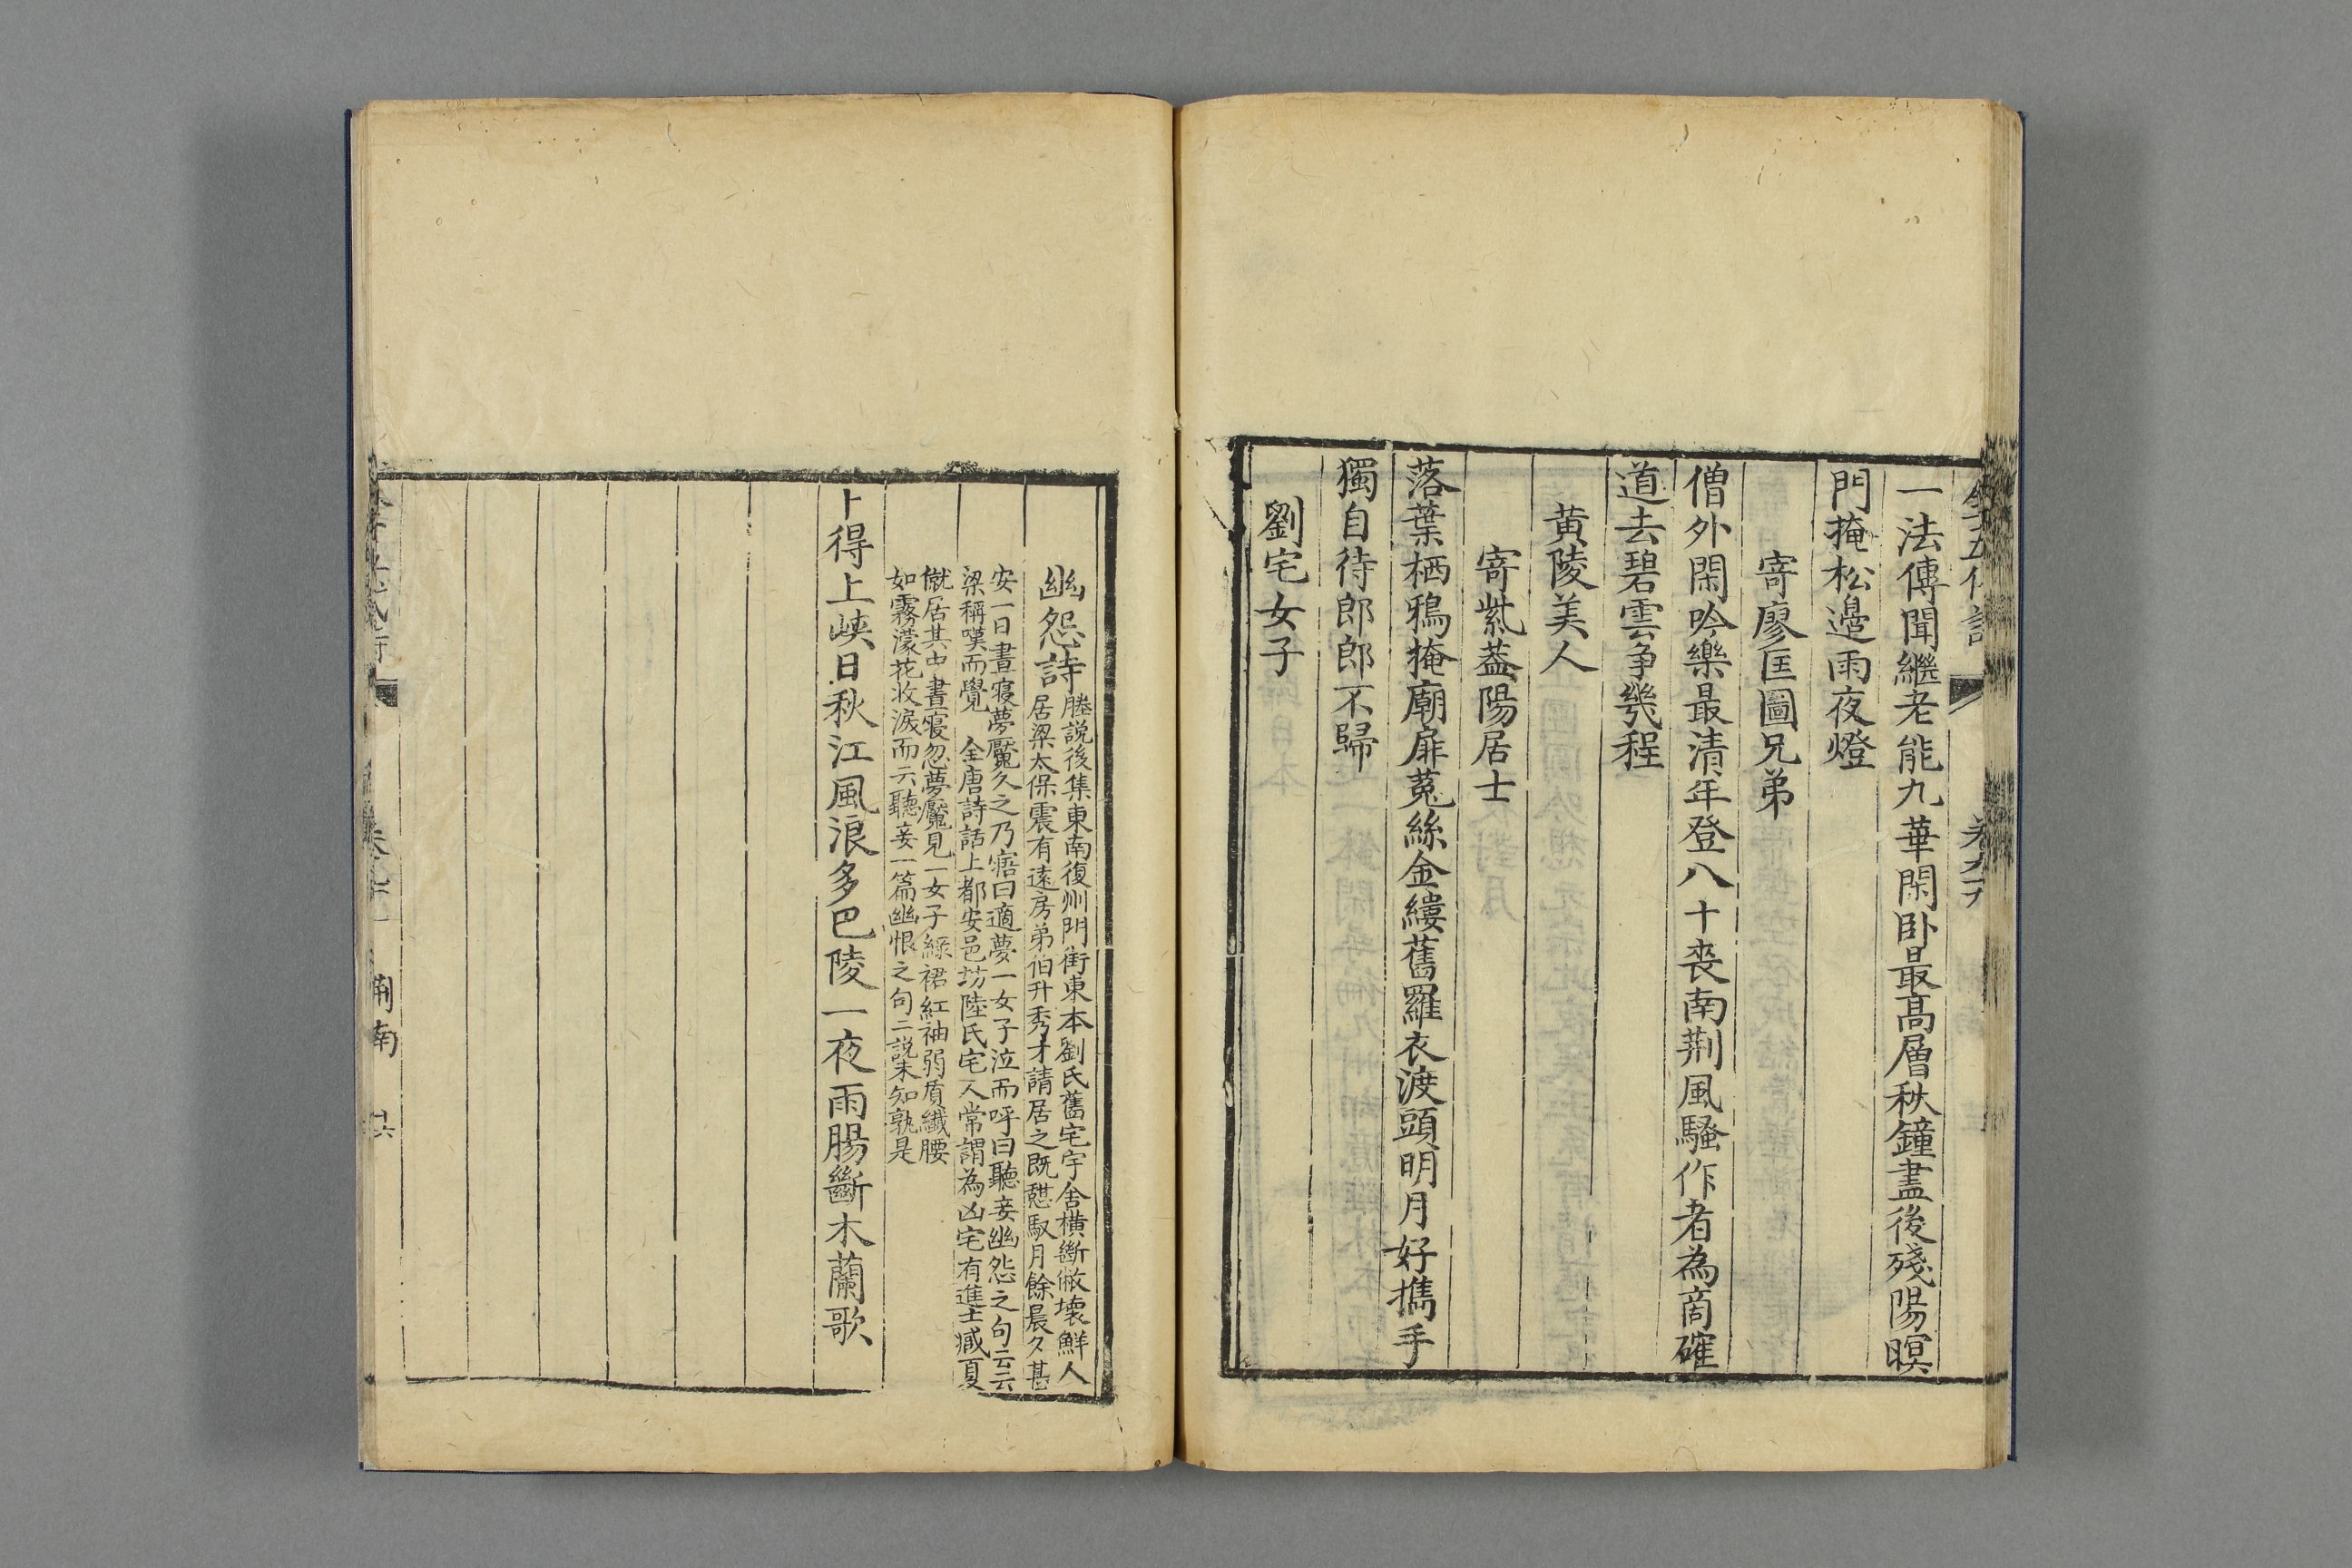 一法傳聞繼老能九華閑卧最髙層秋鐘盡後殘陽暝
門掩松邉雨夜燈
寄廖匡圖兄弟
僧外閑吟樂最清年登八十喪南荆風騷作者為商確
道去碧雲争㡬程
黄陵美人
寄紫葢陽居士
落葉栖鴉掩廟扉菟絲金縷舊羅衣渡頭明月好擕手
獨自待郎郎不歸
劉宅女子
幽怨詩
塍説後集東南復州門街東本劉氏舊宅宇舍横斷敝壊鮮人
居梁太保震有遠房弟伯升秀才請居之既憇馭月餘晨夕甚
安一日晝寢夢魘久之乃寤曰適夢一女子泣而呼曰聽妾幽怨之句云云
梁稱嘆而覺 全唐詩話上都安邑坊陸氏宅人常謂為凶宅有進士臧夏
僦居其中晝寢忽夢魘見一女子綠裙紅袖弱質纖腰
如霧濛花收淚而云聽妾一篇幽恨之句二説未知孰是
卜得上峽日秋江風浪多巴陵一夜雨腸斷木蘭歌